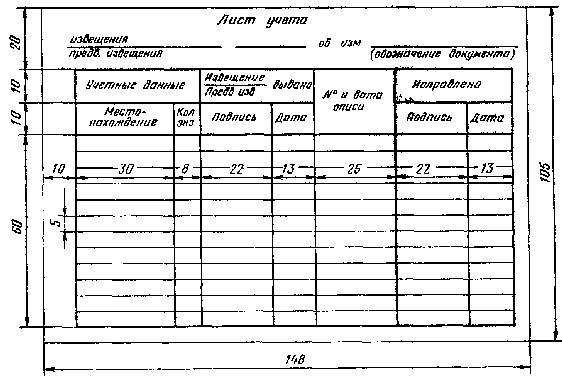 Лист учета
извещения
предв. извещения
об изм
(обозначение документа)
Учетные данные
Извещение
Предв изв
выдано
№ и дата
описи
Исправлено
Место-
нахождение
Кол
экз
Подпись
Дата
Подпись
Дата
20
10
10
60
10
30
8
22
13
25
22
13
5
105
148